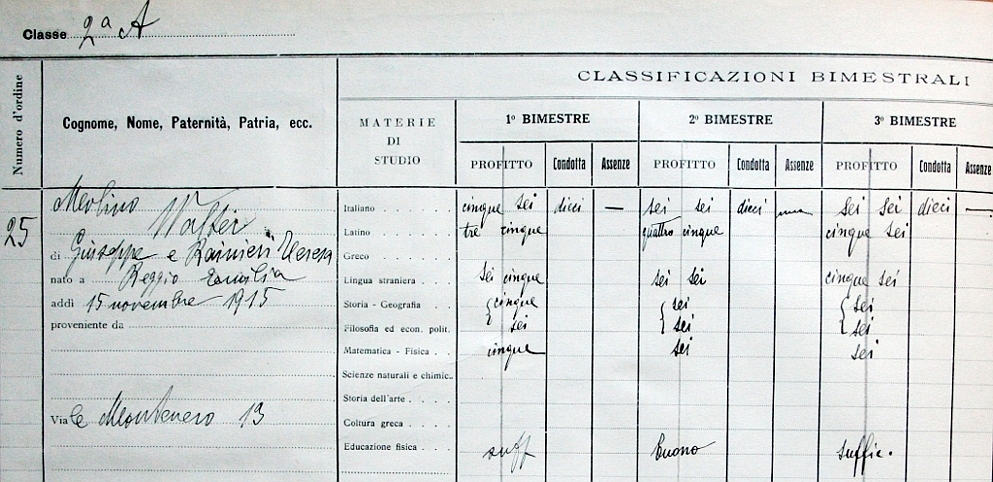 Classe 2ª A
CLASSIFICAZIONI BIMESTRALI
Numero d'ordine
Cognome, Nome, Paternità, Patria, ecc.
MATERIE DI STUDIO
1º BIMESTRE
2º BIMESTRE
3º BIMESTRE
PROFITTO Condotta Assenze PROFITTO Condotta Assenze PROFITTO Condotta Assenze
25
Merlino
Walter
di Giuseppe e Rainieri Teresa
nato a Reggio Emilia
addì 15 novembre 1915
proveniente da
Viale Montenero 13
Italiano cinque sei dieci — sei sei dieci sei sei dieci —
Latino tre cinque quattro cinque cinque sei
Greco
Lingua straniera sei cinque sei sei cinque sei
Storia - Geografia { cinque { sei { sei
Filosofia ed econ. polit. sei sei sei
Matematica - Fisica cinque sei sei
Scienze naturali e chimic.
Storia dell'arte
Coltura greca
Educazione fisica suff buono suffic.